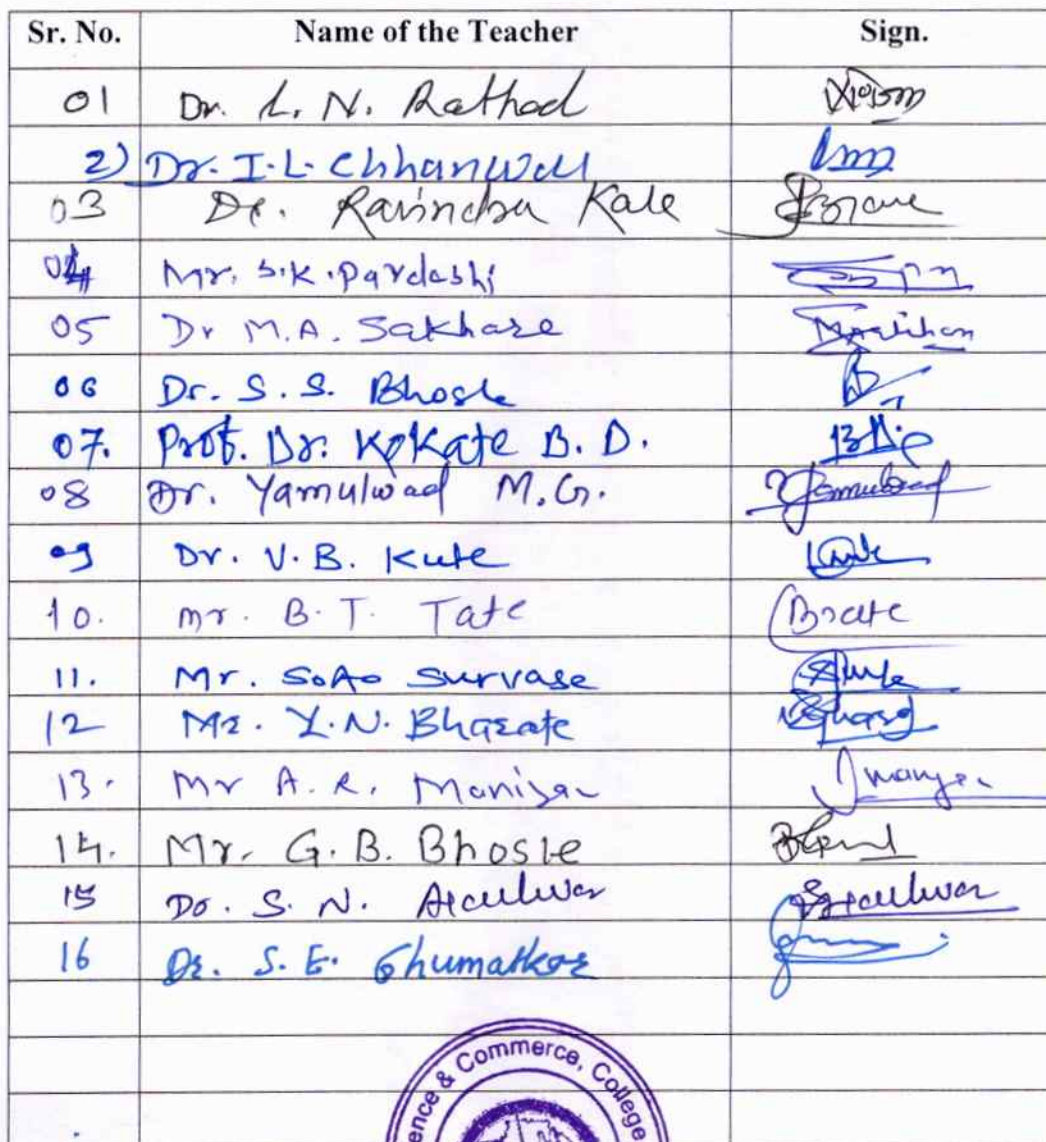 Sr. No. Name of the Teacher Sign.
01 Dr. L. N. Rathod
2) Dr. I.L. Chhanwal
03 Dr. Ravindra Kale
04 Mr. S.K. Pardeshi
05 Dr M.A. Sakhare
06 Dr. S. S. Bhosle
07. Prof. Dr. Kokate B. D.
08 Dr. Yamulwad M.G. Yamulwad
09 Dr. V. B. Kute
10. Mr. B. T. Tate
11. Mr. S.A. Survase
12 Mr. Y.N. Bharate
13. Mr A. R.
14. Mr. G. B. Bhosle
15 Dr. S. N.
16 Dr. S. E. Ghumatkar
ence & Commerce, College